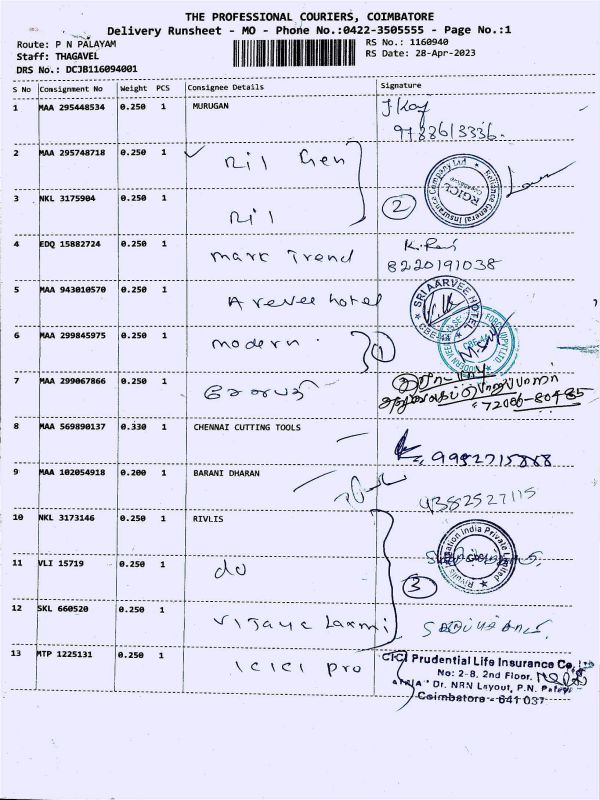 THE PROFESSIONAL COURIERS, COIMBATORE
Delivery Runsheet - MO - Phone No.:0422-3505555 - Page No.:1
Route: P N PALAYAM
RS No.: 1160940
Staff: THAGAVEL
RS Date: 28-Apr-2023
DRS No.: DCJB116094001
S No Consignment No Weight PCS Consignee Details Signature
1 MAA 295448534 0.250 1 MURUGAN
2 MAA 295748718 0.250 1 Ril Gen
Reliance General Insurance Company Ltd
RGICL
3 NKL 3175904 0.250 1 Ril 2
4 EDQ 15882724 0.250 1 mark Trend
8220191038
5 MAA 943010570 0.250 1 Arevee hotel
SRI AARVEE HOTEL
6 MAA 299845975 0.250 1 modern 1
7 MAA 299067866 0.250 1
72006-80485
8 MAA 569890137 0.330 1 CHENNAI CUTTING TOOLS
9 MAA 102054918 0.200 1 BARANI DHARAN
10 NKL 3173146 0.250 1 RIVLIS
11 VLI 15719 0.250 1 do 3
12 SKL 660520 0.250 1 Vijaya Laxmi
13 MTP 1225131 0.250 1 ICICI pro
ICICI Prudential Life Insurance Co.
No: 2-8, 2nd Floor,
Dr. NRN Layout, P.N.
Coimbatore - 641 037